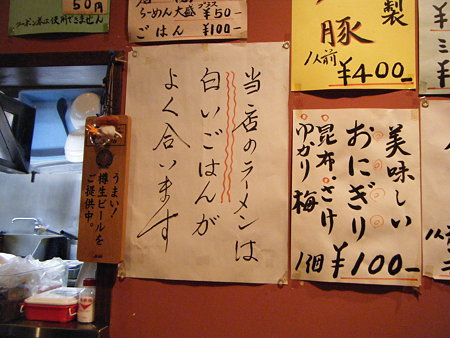 50円
クーポン券は使用できません
らーめん大盛 プラス ¥50-
ごはん ¥100-
豚
1人前 ¥400-
製
当店のラーメンは
白いごはんが
よく合います
美味しい
おにぎり
昆布・さけ
ゆかり 梅
1個 ¥100-
うまい!
樽生ビールを
ご提供中。